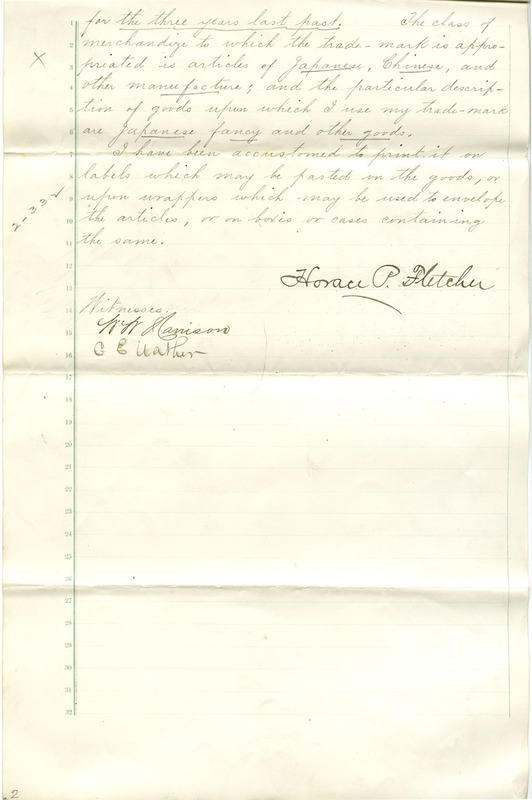 for the three years last past. The class of
merchandize to which the trade-mark is appro-
priated is articles of Japanese, Chinese, and
other manufacture; and the particular descrip-
tion of goods upon which I use my trade-mark
are Japanese fancy and other goods.
I have been accustomed to print it on
labels which may be pasted on the goods, or
upon wrappers which may be used to envelope
the articles, or on boxes or cases containing
the same.
Horace P. Fletcher
Witnesses:
W W Harrison
C E
X
2-332
1
2
3
4
5
6
7
8
9
10
11
12
13
14
15
16
17
18
19
20
21
22
23
24
25
26
27
28
29
30
31
32
2